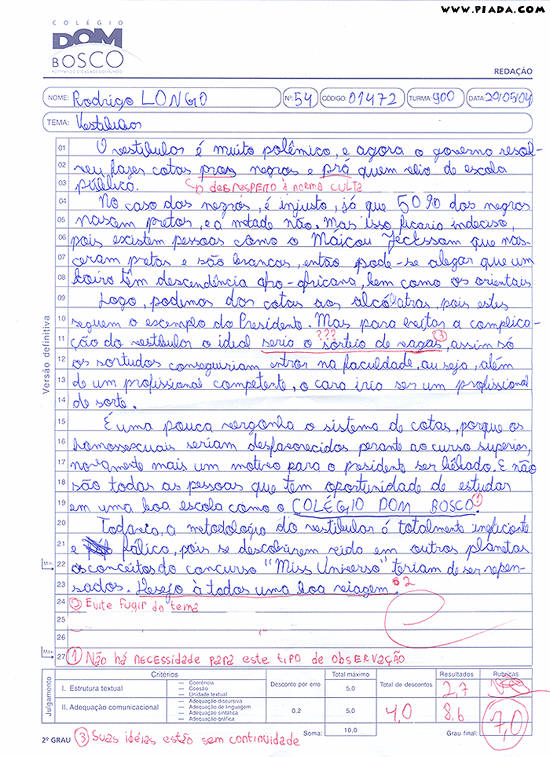 WWW.PIADA.COM
COLÉGIO
DOM
BOSCO
REDAÇÃO
NOME: Rodrigo LONGO Nº: 54 CÓDIGO: 01472 TURMA: 900 DATA: 29/05/04
TEMA: Vestibular
01 O vestibular é muito polêmico, e agora o governo resol-
02 veu fazer cotas pros negros e prá quem veio de escola
03 pública. DESRESPEITO À NORMA CULTA
04 No caso dos negros, é injusto, já que 50% dos negros
05 nascem pretos, e a mtade não. Mas isso ficaria indeciso,
06 pois existem pessoas como o Máicou Jeckssam que nas-
07 ceram pretas e são brancas, então pode-se alegar que um
08 bairro têm descendência afro-africana, bem como os orientais.
09 Logo, podemos dar cotas aos alcoólatras, pois estes
10 seguem o exemplo do Presidente. Mas para evitar a complica-
???
11 cão do vestibular o ideal seria o sorteio de vagas, assim só
12 os sortudos conseguiriam entrar na faculdade, ou seja, além
13 de um profissional competente, o cara iria ser um profissional
14 de sorte.
15 É uma pouca vergonha o sistema de cotas, porque os
16 homossexuais seriam desfavorecidos perante ao curso superior,
17 novamente mais um motivo para o presidente ser bêbado. E não
18 são todas as pessoas que tem oportunidade de estudar
19 em uma boa escola como o COLÉGIO DOM BOSCO. 1
20 Todavia, a metodologia do vestibular é totalmente ineficiente
21 e fálico, pois se descobrirem vida em outros planetas
22 os conceitos do concurso "Miss Universo" teriam de ser repen-
23 sados. Desejo à todos uma boa viagem. 2
24 2 Evite fugir do tema
25
26
27 1 NÃO HÁ NECESSIDADE PARA ESTE TIPO DE OBSERVAÇÃO
Versão definitiva
Min.
Máx.
Julgamento
Critérios Desconto por erro Total máximo Total de descontos Resultados Rubricas
I. Estrutura textual — Coerência — Coesão — Unidade textual 5,0 2,7
II. Adequação comunicacional — Adequação discursiva — Adequação de linguagem — Adequação sintática — Adequação gráfica 0,2 5,0 4,0 8,6
Soma: 10,0 Grau final: 7,0
2º GRAU 3 Suas idéias estão sem continuidade